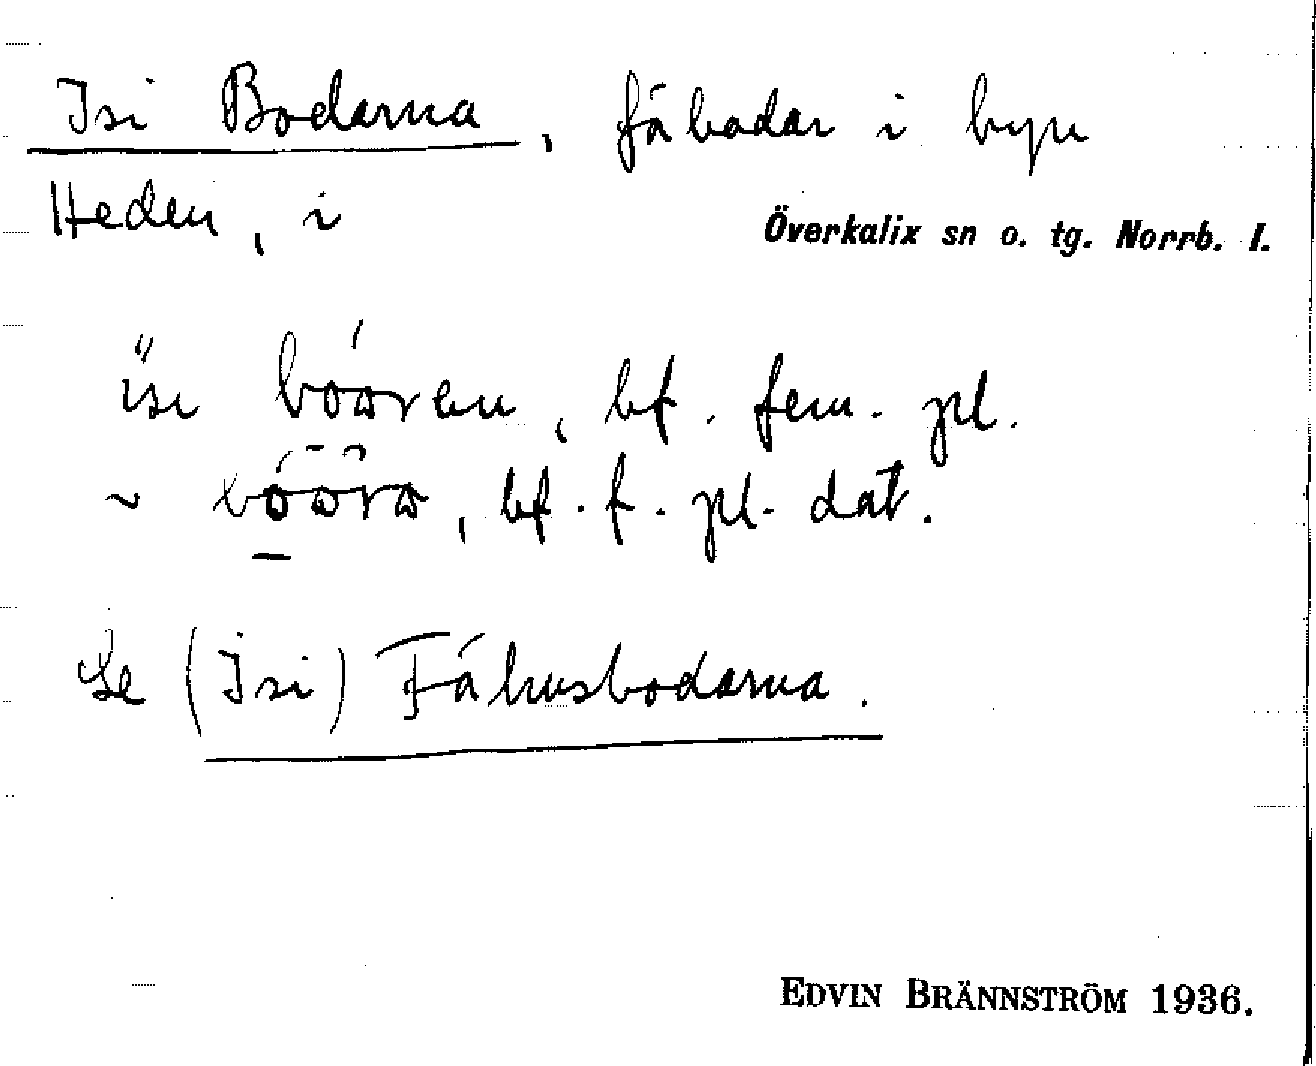 Isi Bodarna, fäbodar i byn
Heden, i Överkalix sn o. tg. Norrb. l.
bf. fem. pl.
~ bf. f. pl. dat.
Se (Isi) Fähusbodarna.
EDVIN BRÄNNSTRÖM 1936.